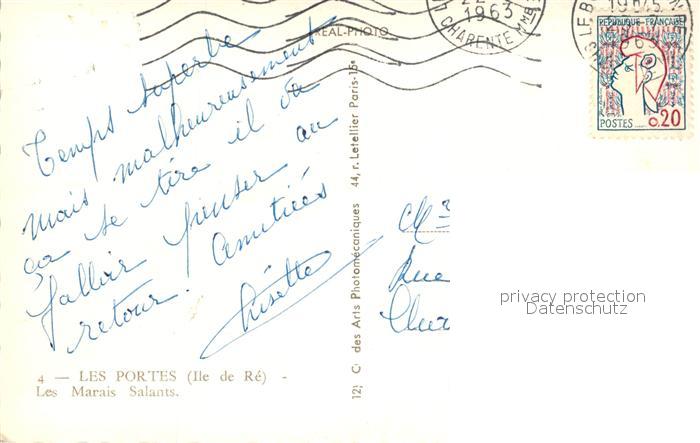 Temps superbe
mais malheureusement
ça se tire il va
falloir penser au
retour. Amitiés
Lisette
4 — LES PORTES (Ile de Ré) -
Les Marais Salants.
REAL-PHOTO
Cie des Arts Photomécaniques 44, r. Letellier Paris-15e
1963
CHARENTE MME
REPUBLIQUE FRANÇAISE
POSTES 0,20
Rue
privacy protection
Datenschutz